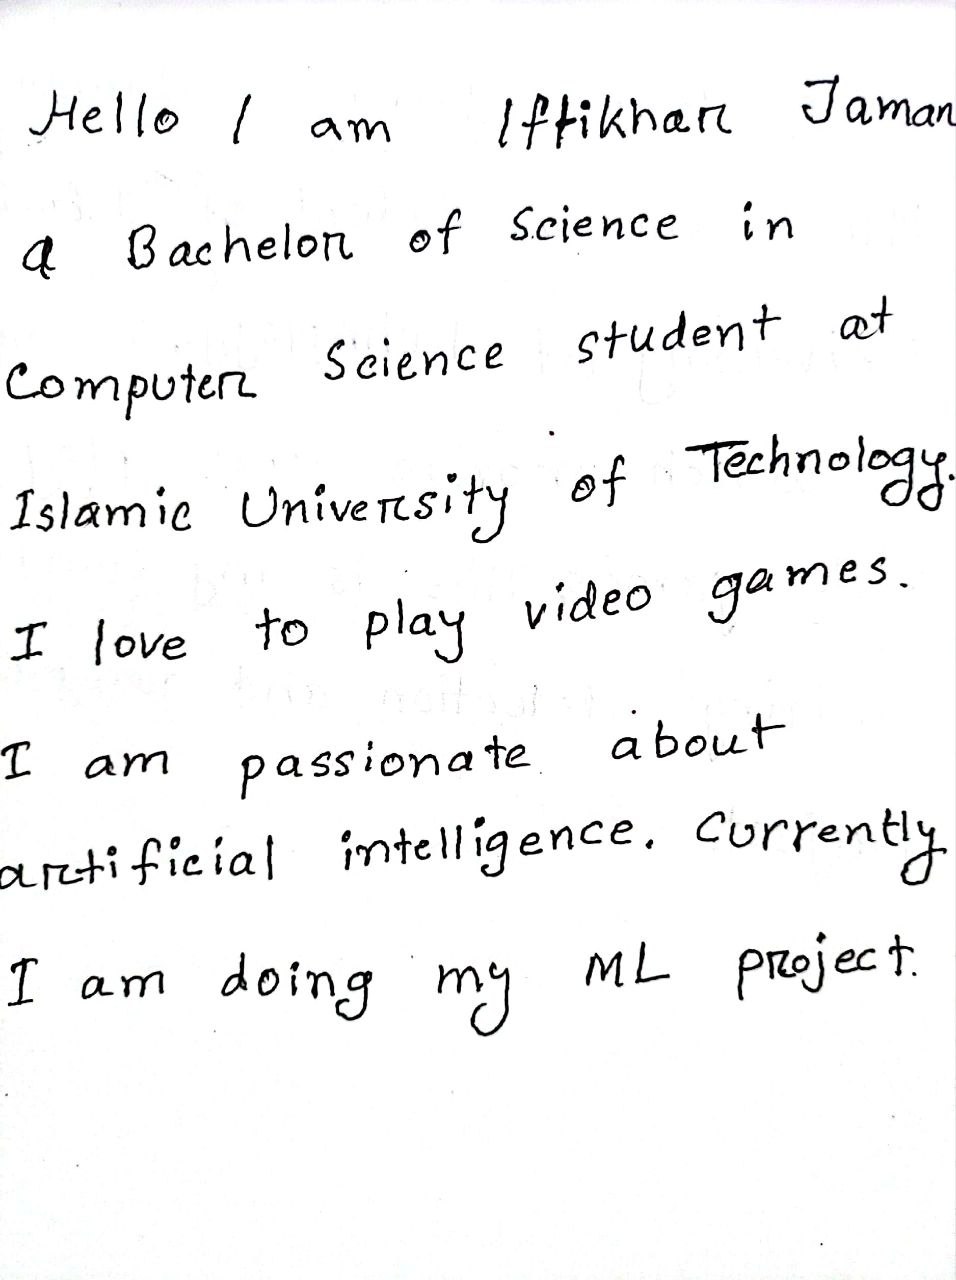 Hello I am Iftikhar Jaman
a Bachelor of Science in
Computer Science student at
Islamic University of Technology.
I love to play video games.
I am passionate about
artificial intelligence. Currently
I am doing my ML project.